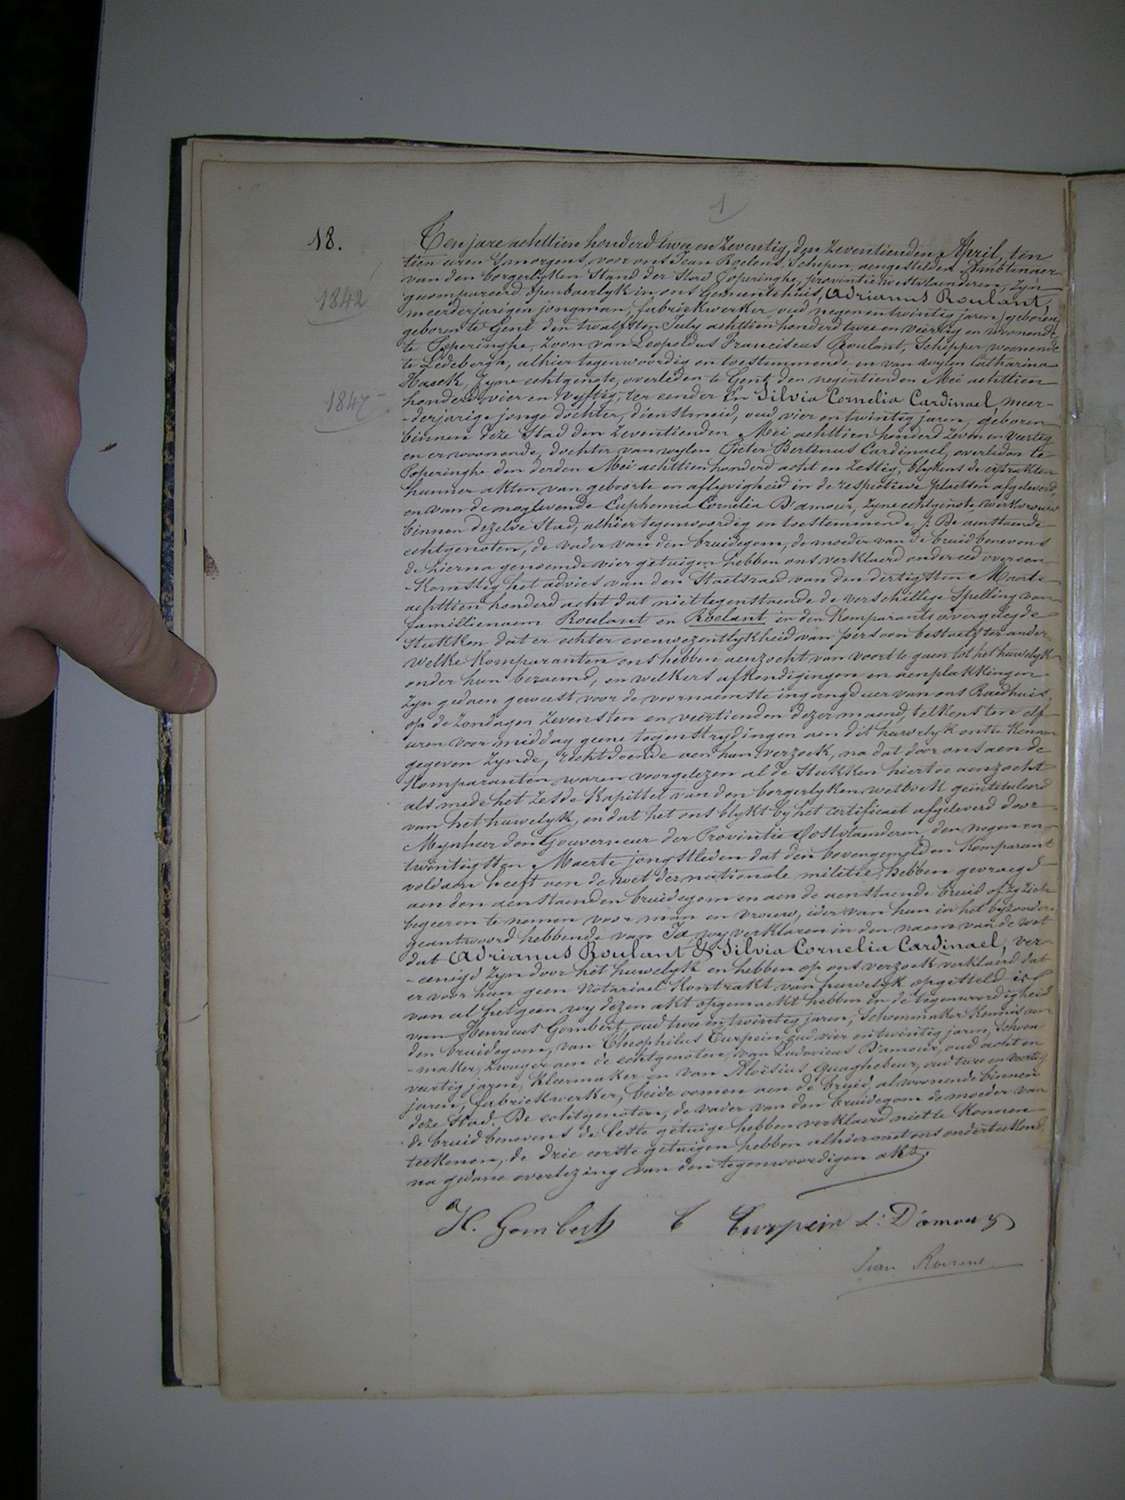 1
18.
1842
1847
Ten jare achttien honderd twee en zeventig, den zeventienden April, ten
tien uren 's morgens, voor ons Jean Roelens Schepen, aengestelden Ambtenaer
van den borgerlyken Stand der Stad Poperinghe, provintie Westvlaenderen, zyn
gecompareerd openbaerlyk in ons Gemeentehuis, Adrianus Roulant,
meerderjarigen jongman, fabriekwerker, oud negen en twintig jaren, geboren
geboren te Gent den twalfsten July achttien honderd twee en veertig en woonende
te Poperinghe, Zoon van Leopoldus Franciscus Roulant, Schipper woonende
te Ledeberg, alhier tegenwoordig en toestemmende en van wylen Catharina
Haeck, zyne echtgenote, overleden te Gent den negentienden Mei achttien
honderd vier en vyftig, ter eender En Silvia Cornelia Cardinael, meer-
-derjarige jonge dochter, dienstmeid, oud vier en twintig jaren, geboren
binnen deze Stad den zeventienden Mei achttien honderd zeven en veertig
en er woonende, dochter van wylen Pieter Bertinus Cardinael, overleden te
Poperinghe den derden Mei achttien honderd acht en zestig, blykens de extrakten
hunner akten van geboorte en aflyvigheid in de respective plaetsen afgeleverd,
en van de nog levende Euphemia Cornelia D'amour, zyne echtgenote, werkvrouw
binnen dezelve Stad, alhier tegenwoordig en toestemmende. De aenstaende
echtgenoten, de vader van den bruidegom, de moeder van de bruid benevens
de hierna genoemde vier getuigen hebben ons verklaerd onder eed overeen-
-komstig het advies van den Staetsraed van den dertigsten Maerte
achttien honderd acht dat niettegenstaende de verschillige spelling van
familienaem Roulant en Roelant in den komparants overgelegde
stukken dat er echter evenwezentlykheid van persoon bestaet, ter ander
Welke Komparanten ons hebben aenzocht van voort te gaen tot het huwelyk
onder hun beraemd, en welkers afkondigingen en aenplakkingen
zyn gedaen geweest voor de voornaemste ingangdeur van ons Raedhuis,
op de zondagen zevensten en veertienden dezer maend, telkens ten elf
uren voormiddag geene tegenstrydingen aen dit huwelyk ons te kennen
gegeven zynde, rechtdoende aen hun verzoek, na dat door ons aen de
Komparanten waren voorgelezen al de stukken hiertoe aenzocht
als mede het zesde kapittel van den borgerlyken wetboek geïntituleerd
van het huwelyk, en dat het ons blykt by het certificaet afgeleverd door
Mynheer den Gouverneur der Provintie Oostvlaenderen, den negen en
twintigsten Maerte jongstleden dat den bovengemelden Komparant
voldaen heeft aen de wet der nationale militie, hebben gevraegd
aen den aenstaenden bruidegom en aen de aenstaende bruid of zy zich
begeeren te nemen voor man en vrouw, ider van hun in het byzonder
geantwoord hebbende van Ja, wy verklaren in den naem van de wet
dat Adrianus Roulant & Silvia Cornelia Cardinael, ver-
-eenigd zyn door het huwelyk en hebben op ons verzoek verklaerd dat
er voor hun geen Notariael kontrakt van huwelyk opgesteld is
van al hetgeen wy dezen akt opgemaekt hebben in de tegenwoordigheid
van Henricus Gombert, oud twee en twintig jaren, schoenmaker kennis van
den bruidegom, van Theophilus Turpein oud vier en twintig jaren, schoen-
-maker, zwager aen de echtgenoten, van Ludovicus D'amour, oud acht en
veertig jaren, kleermaker en van Aloïsius Quaghebeur, oud twee en veertig
jaren, fabriekwerker, beide oomen aen de bruid, al woonende binnen
deze Stad. De echtgenoten, de vader van den bruidegom de moeder van
de bruid benevens de leste getuige hebben verklaerd niet te konnen
teekenen, de drie eerste getuigen hebben alhier met ons onderteekend
na gedane overlezing van den tegenwoordigen akt.
H. Gombert T Turpein L: D'amour
Jean Roelens